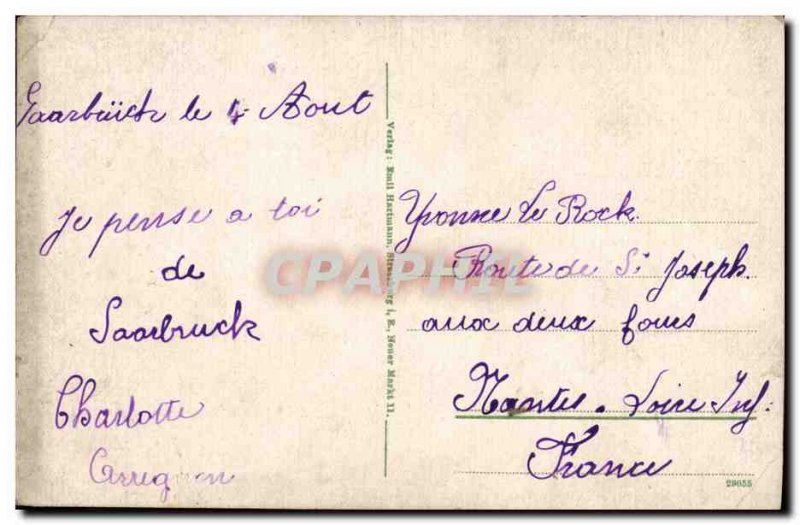 Saarbück le 4 Aout
Je pense a toi
de
Saarbruck
Charlotte
Verlag: Emil Hartmann, Strassburg i. E., Neuer Markt 11.
Yvonne Le Rock
Route de St Joseph
aux deux fours
Nantes. Loire Inf:
France
29655
CPAPHIL